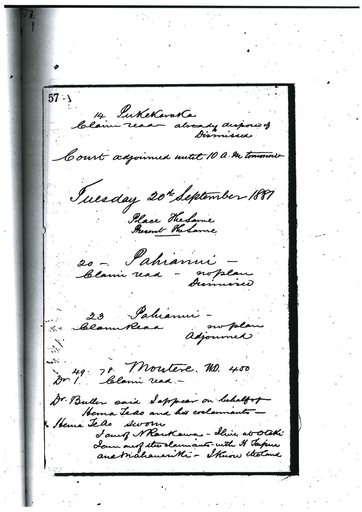 57
14 Pukekaraka
Claim read already disposed of
Dismissed
Court adjourned until 10 A.M. tomorrow
Tuesday 20th September 1887
Place The Same
Present The Same
20 - Pahianui -
Claim read - no plan
Dismissed
23 Pahianui -
Claim Read no plan
Adjourned
49. 78. Moutere. 400
1. Claim read -
Mr. Butler said I appear on behalf of
Hema Te Ao and his coclaimants -
Hema Te Ao sworn
I am of N Raukawa - I live at Otaki
I am one of the claimants with H
and - I know the land